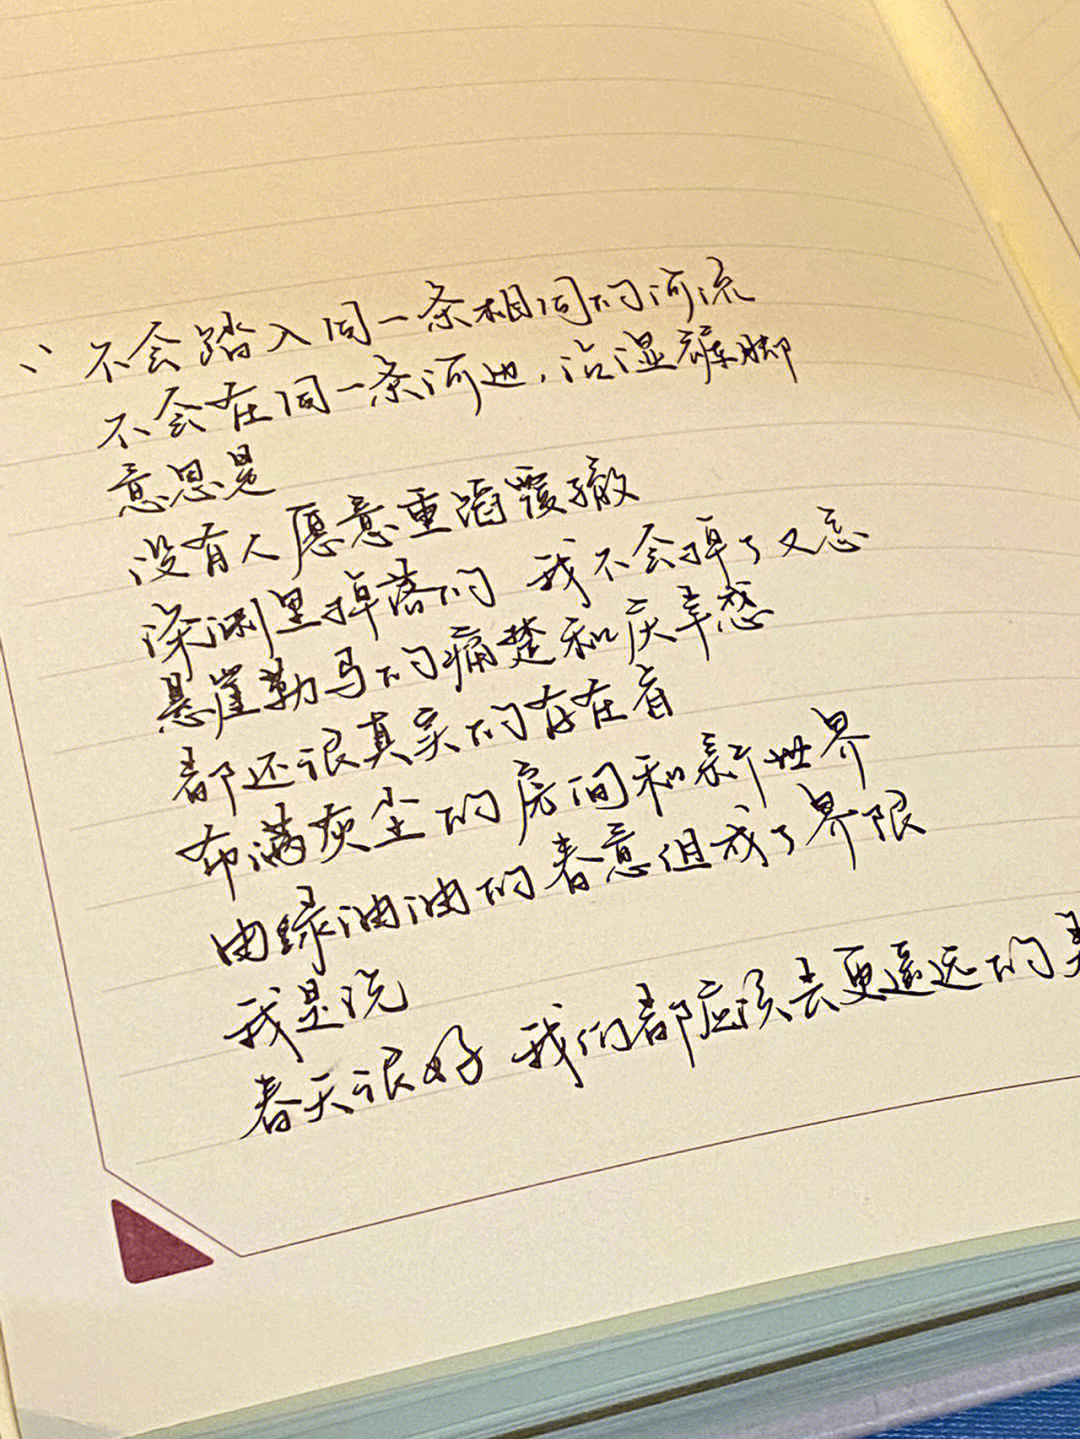 、不会踏入同一条相同的河流
不会在同一条河边,沾湿裤脚
意思是
没有人愿意重蹈覆撤
深渊里掉落的 我不会掉了又忘
悬崖勒马的痛楚和庆幸感
都还很真实的存在着
布满灰尘的房间和新世界
由绿油油的春意组成了界限
我是说
春天很好 我们都应该去更遥远的